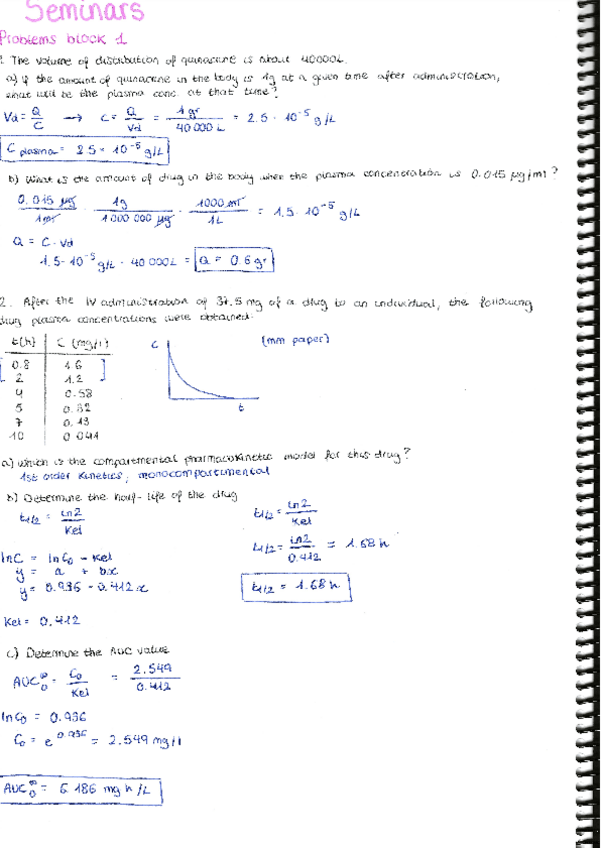 Seminars
Problems block 1
1. The volume of distribution of quinacrine is about 40000L.
a) if the amount of quinacrine in the body is 1g at a given time after administration,
what will be the plasma conc. at that time?
Vd = Q/C → C = Q/Vd = 1gr/40 000 L = 2.5 · 10⁻⁵ g/L
C plasma = 2.5 · 10⁻⁵ g/L
b) What is the amount of drug in the body when the plasma concentration is 0.015 µg/ml?
0.015 µg/1ml · 1g/1 000 000 µg · 1000 ml/1L = 1.5 · 10⁻⁵ g/L
Q = C · Vd
1.5 · 10⁻⁵ g/L · 40 000L = Q = 0.6 gr
2. After the IV administration of 37.5 mg of a drug to an individual, the following
drug plasma concentrations were obtained:
t(h) C (mg/l)
0.8 1.6
2 1.2
4 0.58
5 0.32
7 0.13
10 0.041
C
t
(mm paper)
a) Which is the compartmental pharmacokinetic model for this drug?
1st order kinetics, monocompartimental
b) Determine the half-life of the drug
t1/2 = ln2/Kel
lnC = lnC0 - Kel
y = a + bx
y = 0.936 - 0.412x
Kel = 0.412
t1/2 = ln2/Kel
t1/2 = ln2/0.412 = 1.68 h
t1/2 = 1.68 h
c) Determine the AUC value
AUC₀^∞ = C0/Kel = 2.549/0.412
lnC0 = 0.936
C0 = e^0.936 = 2.549 mg/l
AUC₀^∞ = 6.186 mg h/L